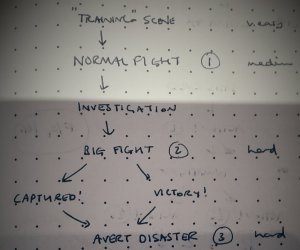 "TRAINING" SCENE v. easy
NORMAL FIGHT 1 medium
INVESTIGATION
BIG FIGHT 2 hard
CAPTURED! VICTORY!
AVERT DISASTER 3 hard